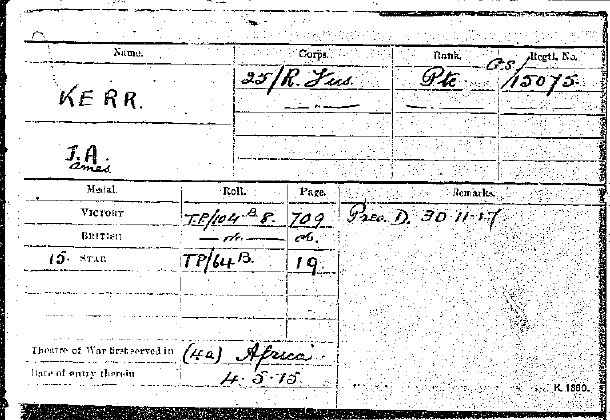 Name. Corps. Rank. Regtl. No.
KERR. 25/R. Fus. Pte G.S/15075
J.A.
ames.
Medal. Roll. Page. Remarks.
VICTORY TP/104 B 8. 709 Pres. D. 30-11-17
BRITISH do. do.
15 STAR TP/64 B. 19
Theatre of War first served in (4a) Africa
Date of entry therein 4.5.15
K. 1380.